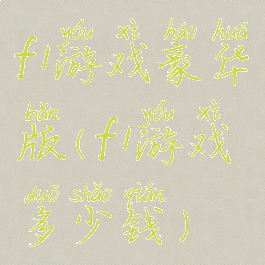 yóu xì háo huá
f1游戏豪华
bǎn yóu xì
版(f1游戏
duō shǎo qián
多少钱)